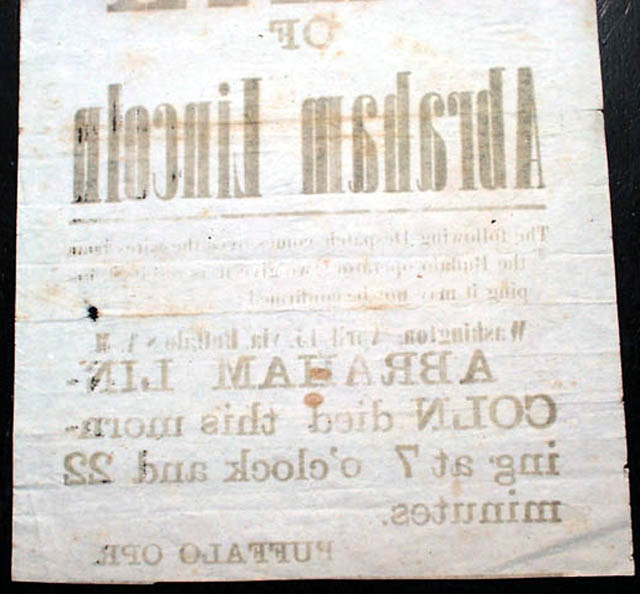 OF
Abraham Lincoln
The following Despatch comes over the wires from
the Buffalo operator we give it as
ping it may not be confirmed
Washington, April 15, via Buffalo 8 A. M.
ABRAHAM LIN-
COLN died this morn-
ing at 7 o'clock and 22
minutes.
PUFFALO OPR.